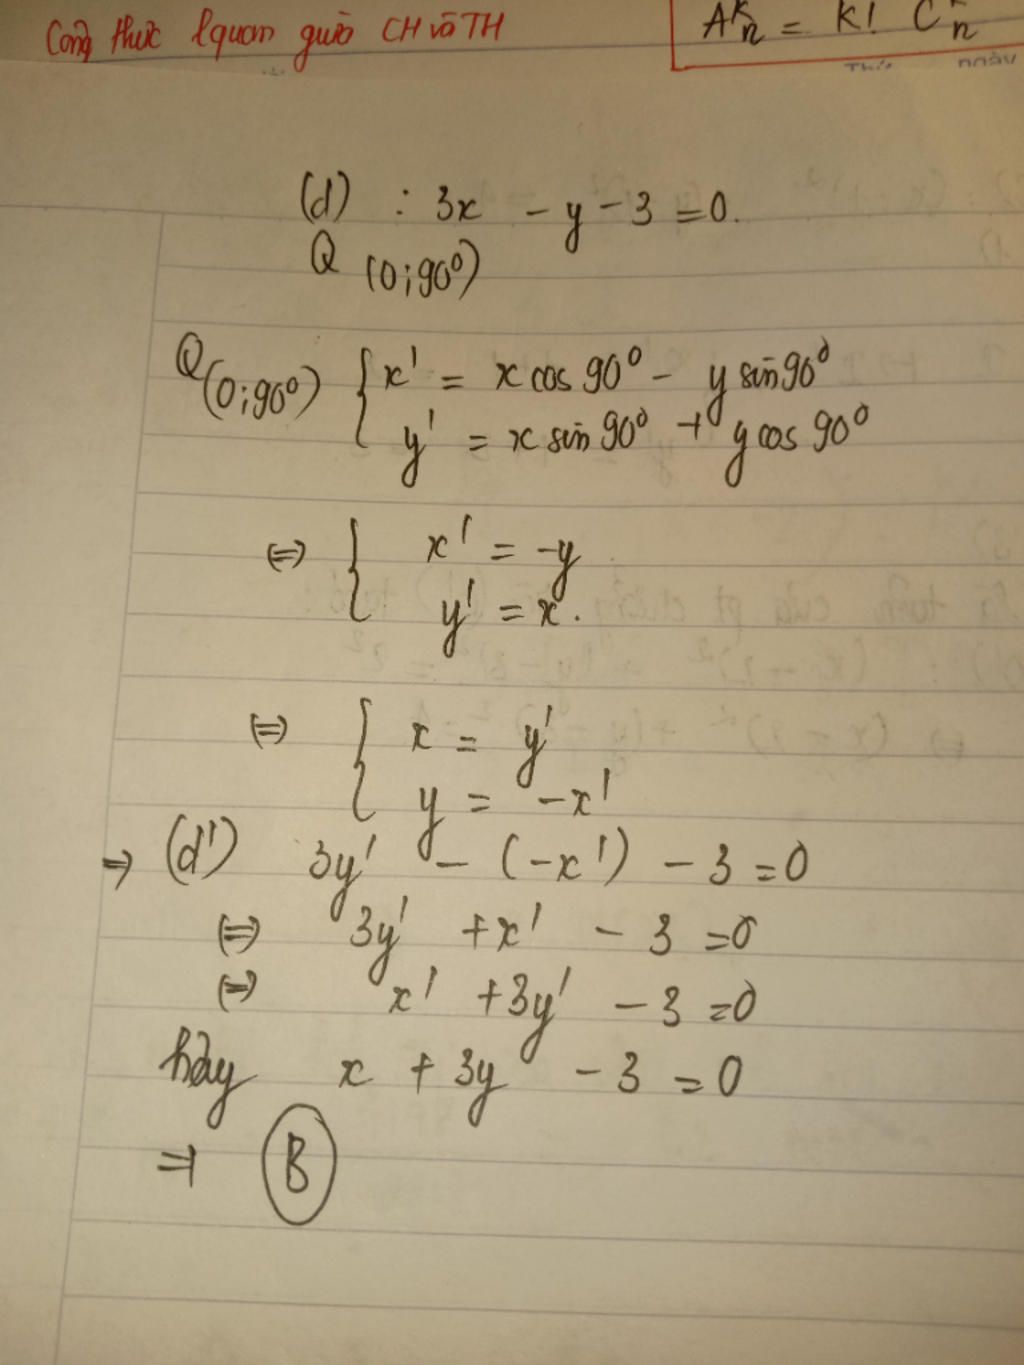 Công thức lquan giữa CH và TH
A^k_n = k! C^k_n
Thứ ngày
(d) : 3x - y - 3 = 0.
Q (O;90°)
Q(O;90°) { x' = x cos 90° - y sin 90°
y' = x sin 90° + y cos 90°
⇔ { x' = -y
y' = x.
⇔ { x = y'
y = -x'
⇒ (d') 3y' - (-x') - 3 = 0
⇔ 3y' + x' - 3 = 0
⇔ x' + 3y' - 3 = 0
hay x + 3y - 3 = 0
⇒ B